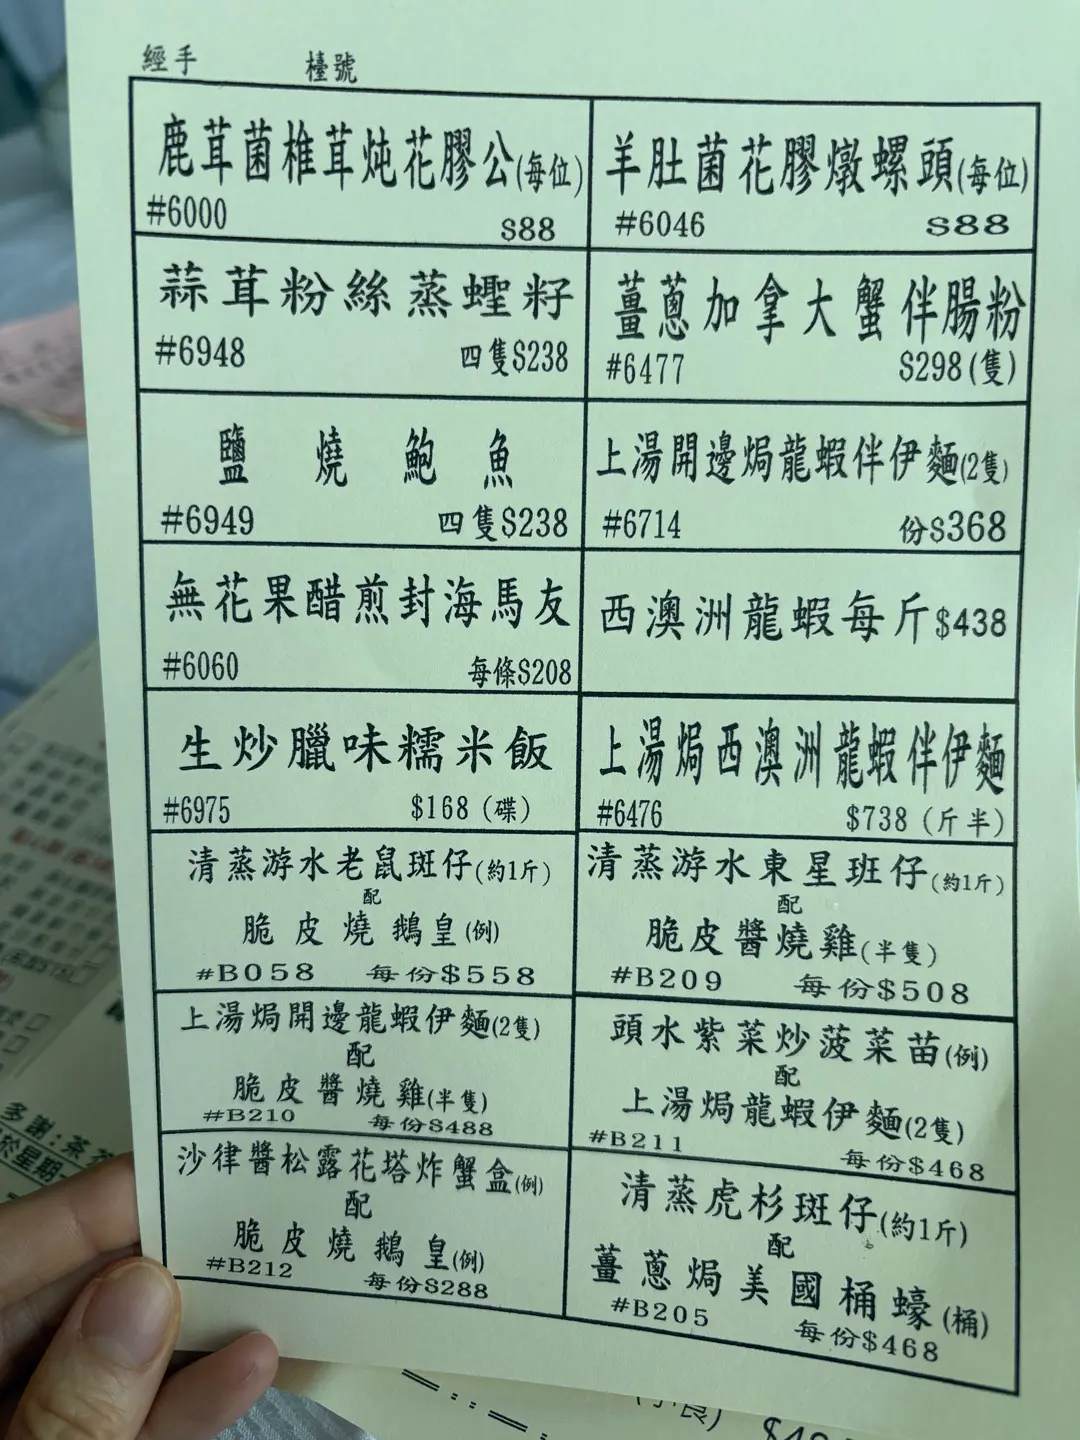 經手 檯號
鹿茸菌椎茸炖花膠公(每位)
#6000 $88
羊肚菌花膠燉螺頭(每位)
#6046 $88
蒜茸粉絲蒸蟶籽
#6948 四隻$238
薑蔥加拿大蟹伴腸粉
#6477 $298(隻)
鹽燒鮑魚
#6949 四隻$238
上湯開邊焗龍蝦伴伊麵(2隻)
#6714 份$368
無花果醋煎封海馬友
#6060 每條$208
西澳洲龍蝦每斤$438
生炒臘味糯米飯
#6975 $168 (碟)
上湯焗西澳洲龍蝦伴伊麵
#6476 $738 (斤半)
清蒸游水老鼠斑仔(約1斤)
配
脆皮燒鵝皇(例)
#B058 每份$558
清蒸游水東星班仔(約1斤)
配
脆皮醬燒雞(半隻)
#B209 每份$508
上湯焗開邊龍蝦伊麵(2隻)
配
脆皮醬燒雞(半隻)
#B210 每份$488
頭水紫菜炒菠菜苗(例)
配
上湯焗龍蝦伊麵(2隻)
#B211 每份$468
沙律醬松露花塔炸蟹盒(例)
配
脆皮燒鵝皇(例)
#B212 每份$288
清蒸虎杉斑仔(約1斤)
配
薑蔥焗美國桶蠔(桶)
#B205 每份$468
多謝:茶
於星期